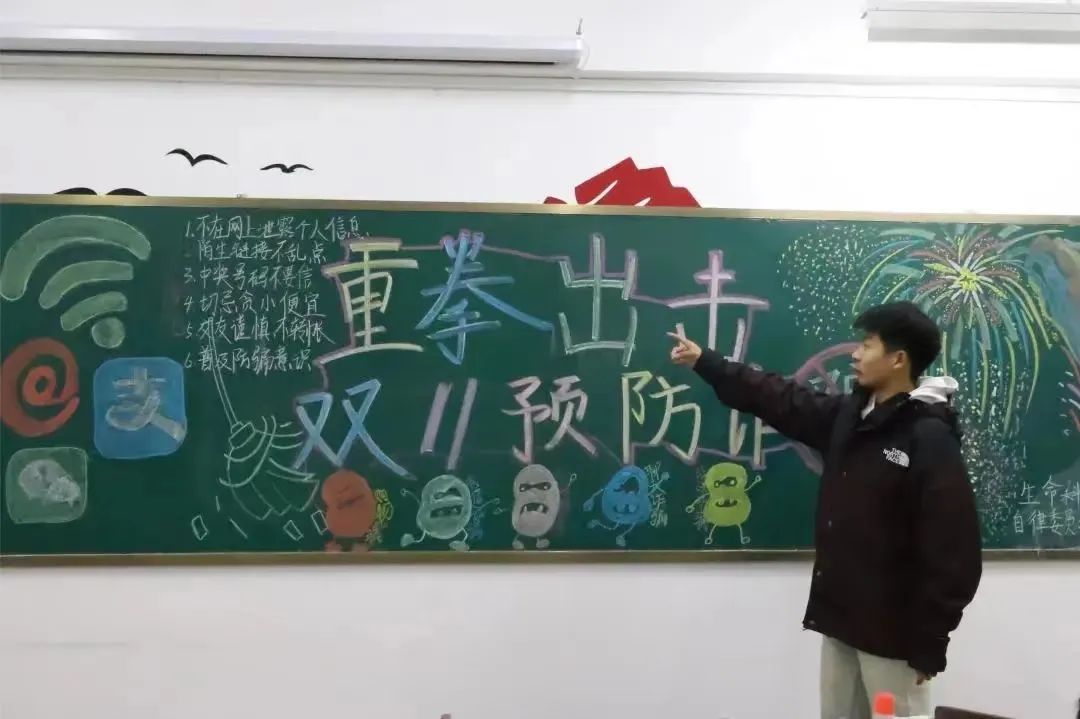 1.不在网上泄露个人信息
2.陌生链接不乱点
3.中央号码不要信
4.切忌贪小便宜
5.交友谨慎不转账
6.普及防骗意识
重拳出击
双11预防诈
支
THE NORTH FACE
生命科
自律委员